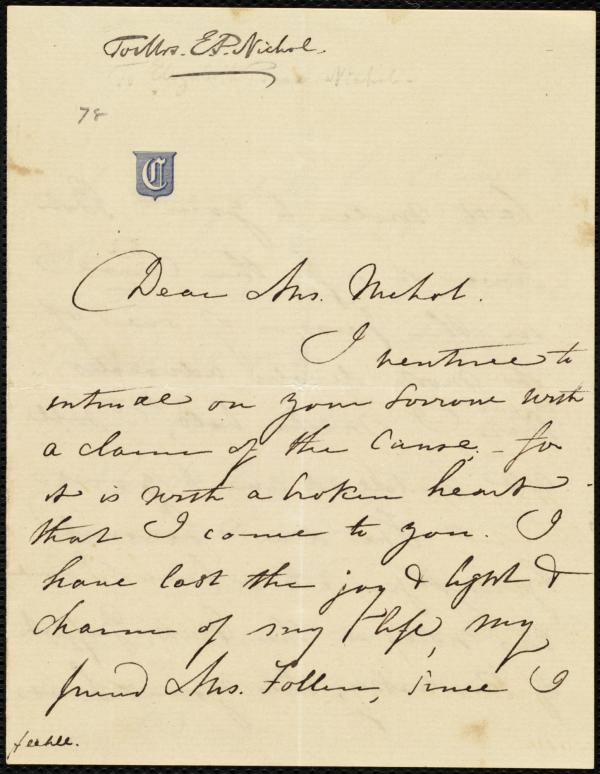 To Mrs. E.P. Nichol.
78
C
Dear Mrs. Nichol.
I venture to
intrude on your sorrow with
a claim of the Cause, - for
it is with a broken heart
that I come to you. I
have lost the joy & light &
charm of my life, my
friend Mrs. Follen, since I